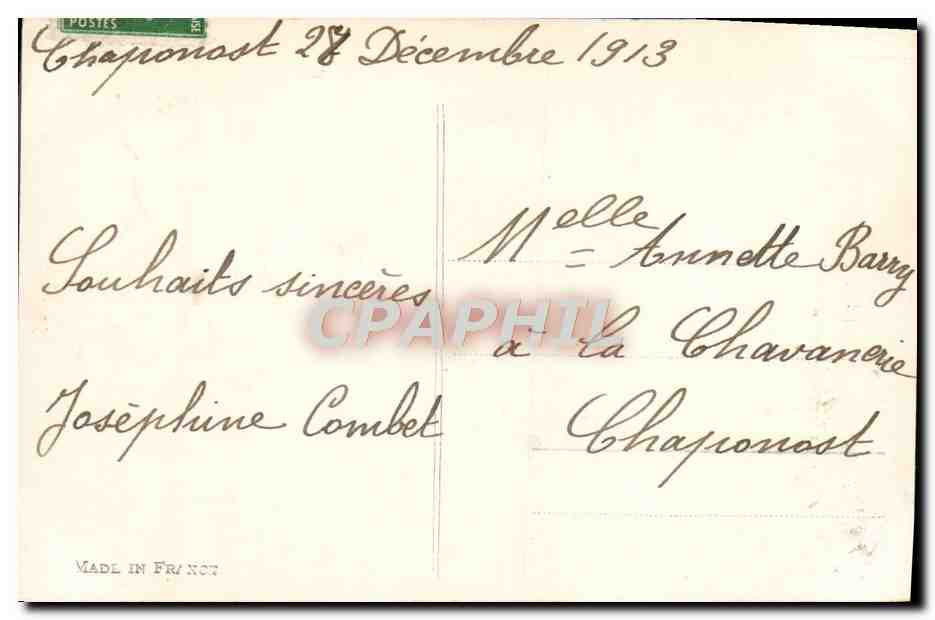 POSTES
Chaponost 28 Décembre 1913
Souhaits sincères
Joséphine Combet
Melle Annette Barry
à la Chavanerie
Chaponost
CPAPHIL
MADE IN FRANCE